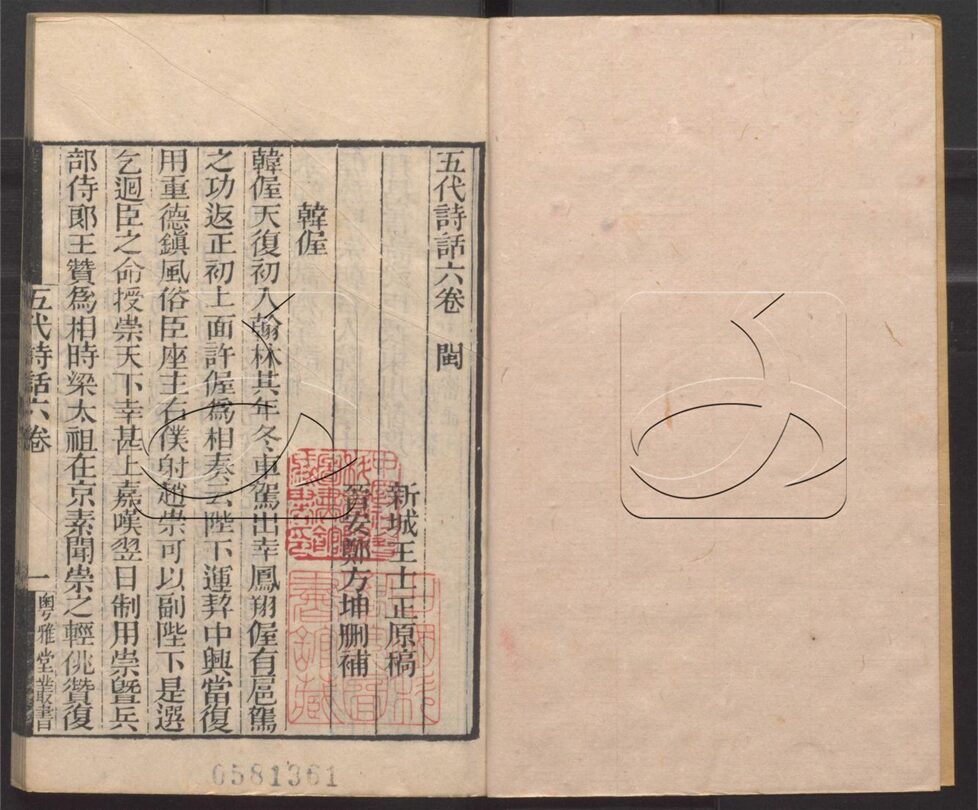 五代詩話六卷　閩
新城王士正原稿
鄭方坤刪補
韓偓
韓偓天復初入翰林其年冬車駕出幸鳳翔偓有扈駕
之功返正初上面許偓爲相奏云陛下運契中興當復
用重德鎮風俗臣座主右僕射趙崇可以副陛下是選
乞迴臣之命授崇天下幸甚上嘉嘆翌日制用崇曁兵
部侍郎王贊爲相時梁太祖在京素聞崇之輕佻贊復
五代詩話六卷
一
粵雅堂叢書
0581361